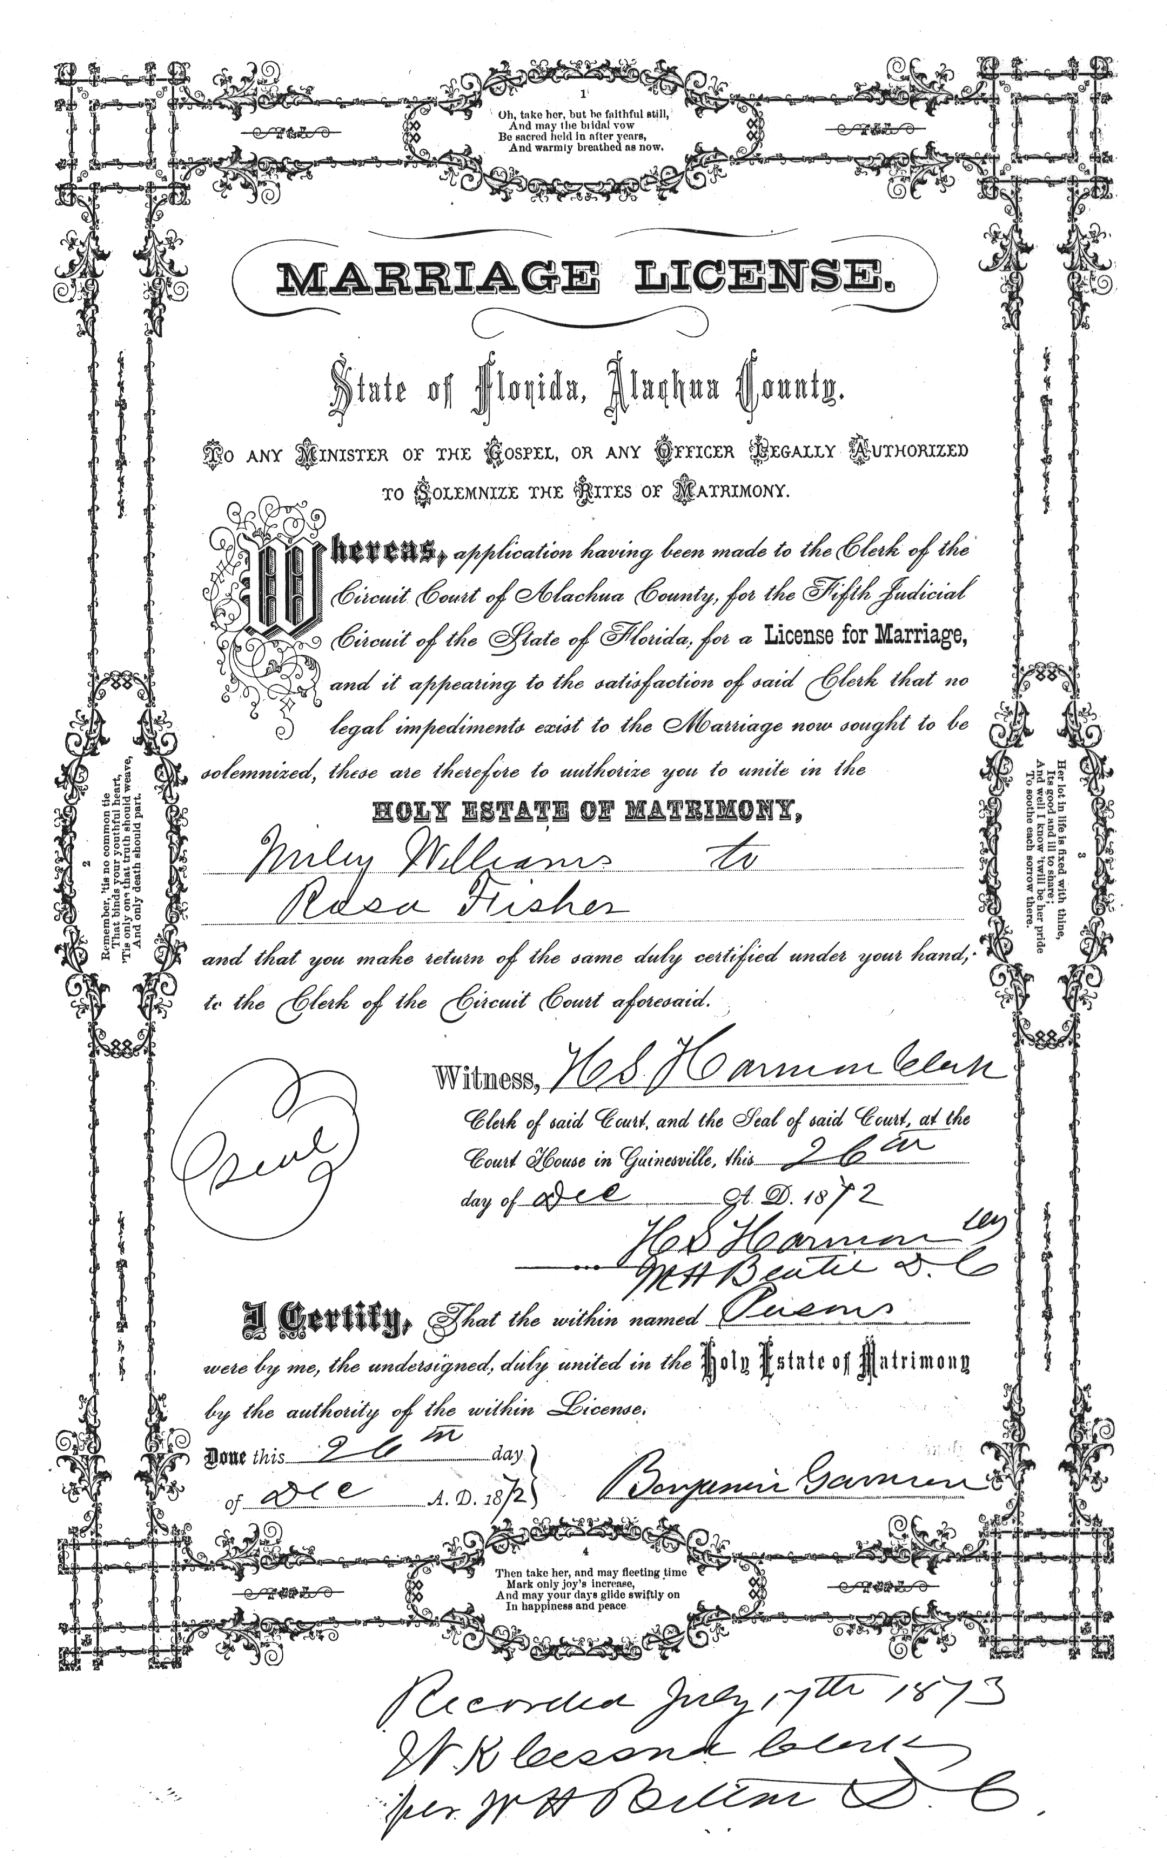 1
Oh, take her, but be faithful still,
And may the bridal vow
Be sacred held in after years,
And warmly breathed as now.
MARRIAGE LICENSE.
State of Florida, Alachua County.
TO ANY MINISTER OF THE GOSPEL, OR ANY OFFICER LEGALLY AUTHORIZED
TO SOLEMNIZE THE RITES OF MATRIMONY.
Whereas, application having been made to the Clerk of the
Circuit Court of Alachua County, for the Fifth Judicial
Circuit of the State of Florida, for a License for Marriage,
and it appearing to the satisfaction of said Clerk that no
legal impediments exist to the Marriage now sought to be
solemnized, these are therefore to authorize you to unite in the
HOLY ESTATE OF MATRIMONY,
Wiley Williams to
Rosa Fisher
and that you make return of the same duly certified under your hand,
to the Clerk of the Circuit Court aforesaid.
2
Remember, 'tis no common tie
That binds your youthful heart,
'Tis only one that truth should weave,
And only death should part.
3
Her lot in life is fixed with thine,
Its good and ill to share;
And well I know 'twill be her pride
To soothe each sorrow there.
Witness, H S Harmon Clerk
Clerk of said Court, and the Seal of said Court, at the
Court House in Gainesville, this 26th
day of Dec A. D. 1872
Seal
H S Harmon
D. C
I Certify, That the within named Persons
were by me, the undersigned, duly united in the Holy Estate of Matrimony
by the authority of the within License.
Done this 26th day
of Dec A. D. 1872
Benjamin
4
Then take her, and may fleeting time
Mark only joy's increase,
And may your days glide swiftly on
In happiness and peace
Recorded July 17th 1873
W. K Cessna Clerk
per W H D. C.